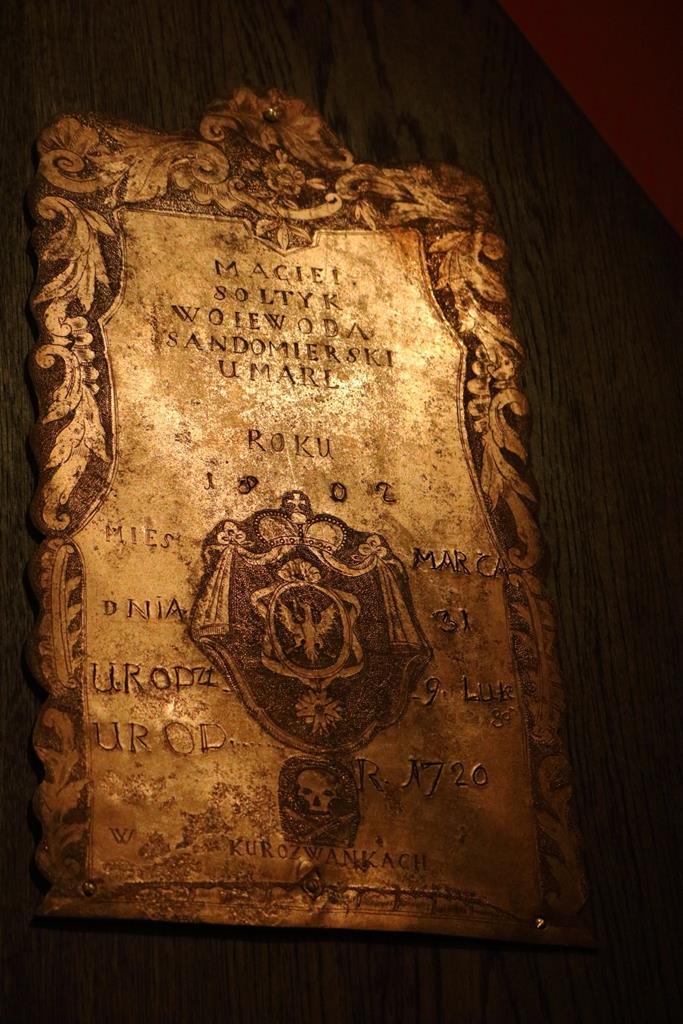 MACIEI
SOLTYK
WOIEWODA
SANDOMIERSKI
UMARL
ROKU
1802
MIES MARCA
DNIA 31
URODZ 9
UROD...... R. 1720
W KUROZWANKACH